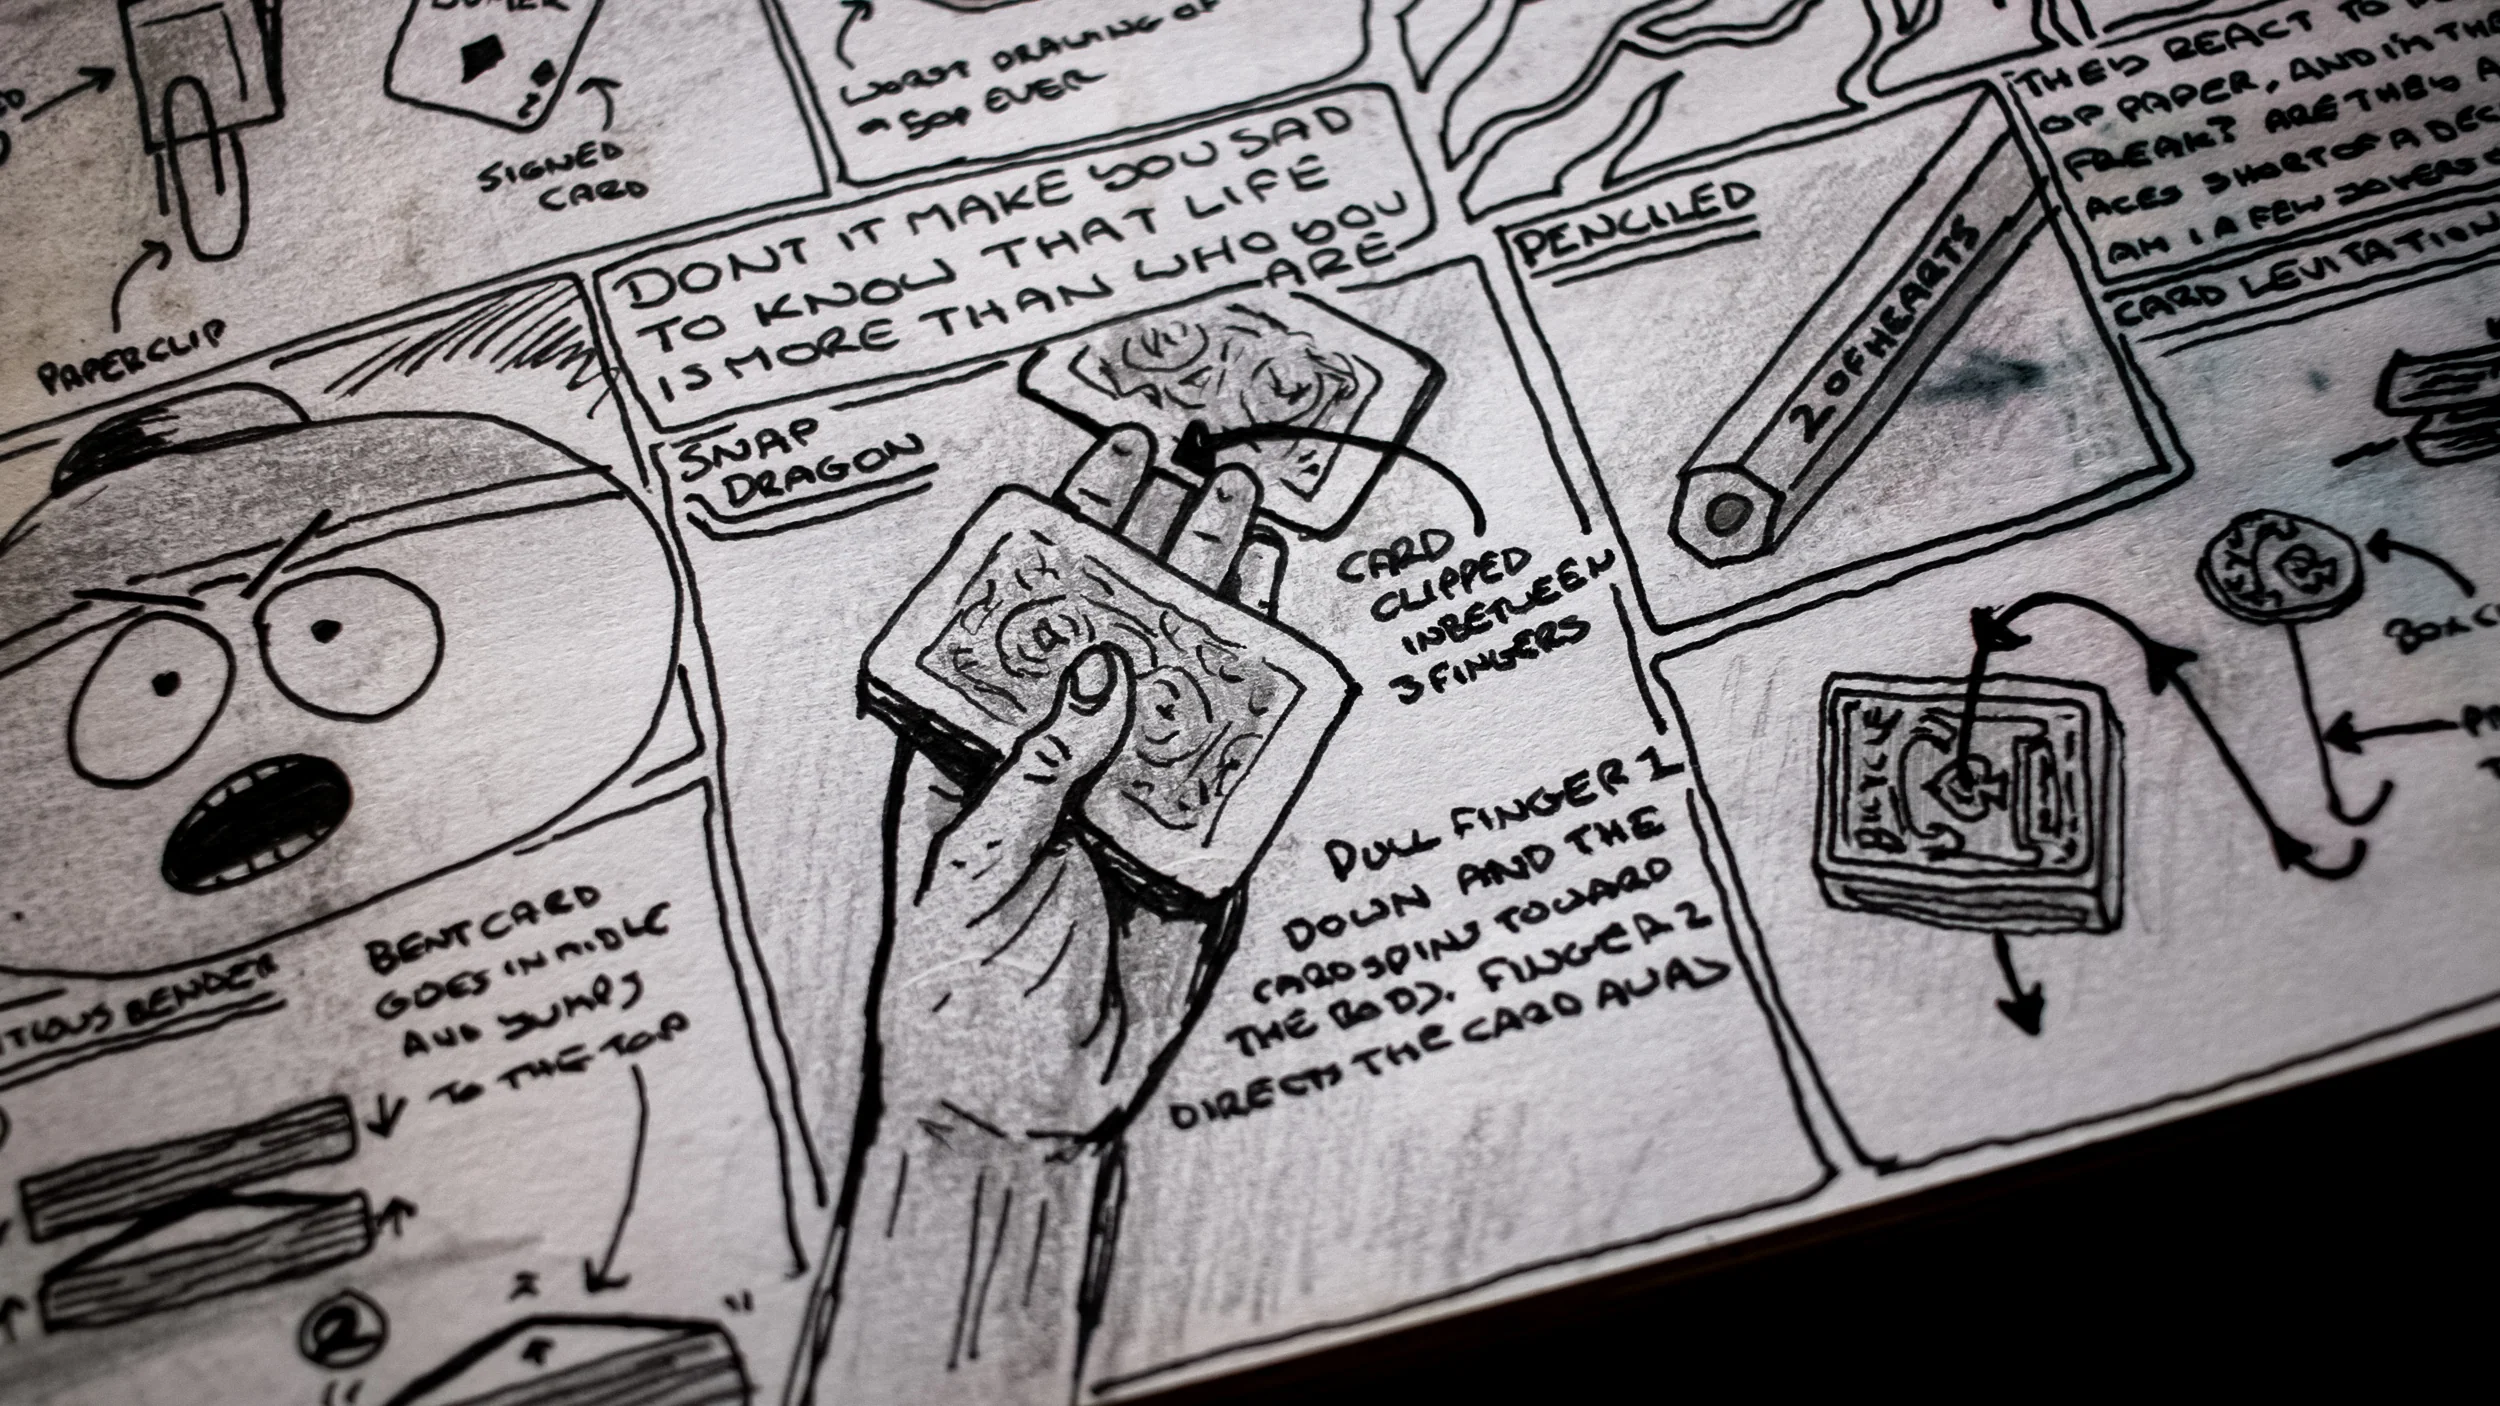 SIGNED
CARD
PAPERCLIP
WORST DRAWING OF
A 50P EVER
DONT IT MAKE YOU SAD
TO KNOW THAT LIFE
IS MORE THAN WHO YOU
ARE
SNAP
DRAGON
CARD
CLIPPED
INBETWEEN
3 FINGERS
PULL FINGER 1
DOWN AND THE
CARD SPINS TOWARD
THE BODY. FINGER 2
DIRECTS THE CARD AWAY
PENCILED
2 OF HEARTS
THEY REACT TO
OF PAPER, AND I'M THE
FREAK? ARE THEY A
ACES SHORT OF A DEC
AM I A FEW JOKERS
CARD LEVITATION
BICYCLE
BOX
BENDER
BENT CARD
GOES IN MIDLE
AND JUMPS
TO THE TOP
2